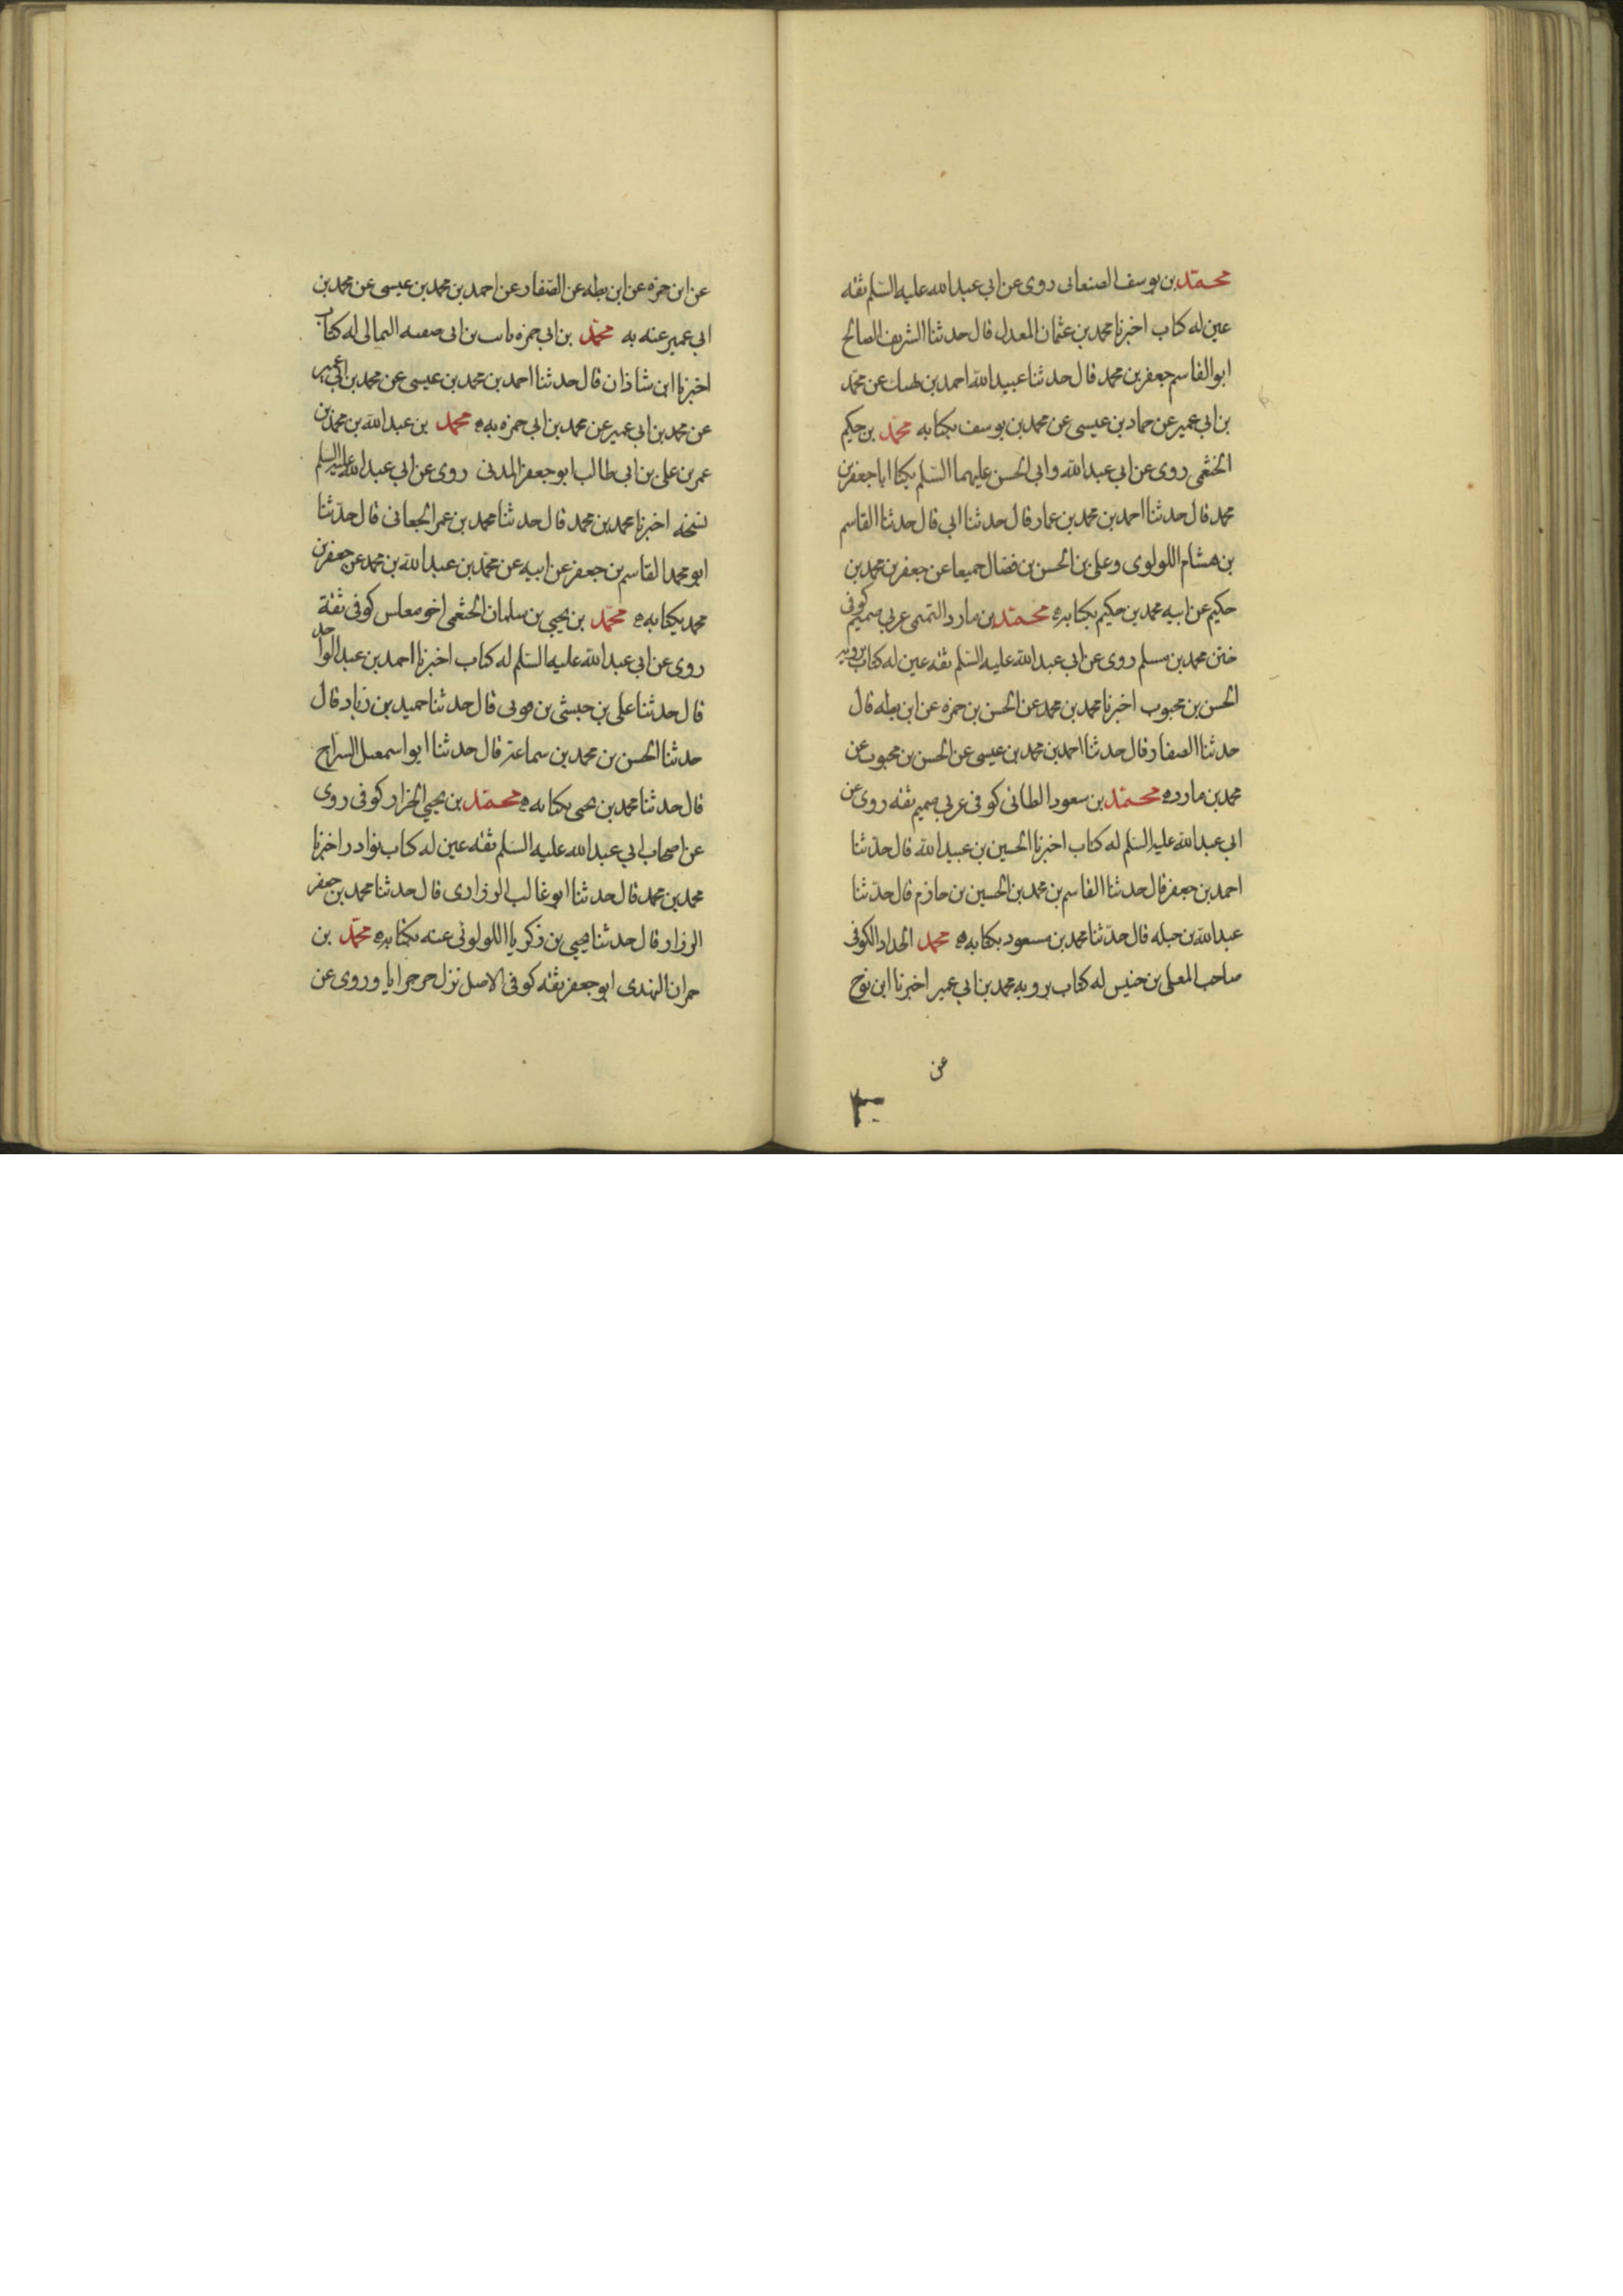 محمد بن يوسف الصنعانى روى عن ابي عبدالله عليه السلم ثقه
عين له كتاب اخبرنا محمد بن عثمان المعدل قال حدثنا الشريف الصالح
ابوالقاسم جعفر بن محمد قال حدثنا عبيدالله احمد بن نهيك عن محمد
بن ابي عمير عن حماد بن عيسى عن محمد بن يوسف بكتابه محمد بن حكيم
الخثعمى روى عن ابي عبدالله وابي الحسن عليهما السلم يكنا اباجعفر بن
محمد قال حدثنا احمد بن محمد بن عمار قال حدثنا ابي قال حدثنا القاسم
بن هشام اللولوى وعلى بن الحسن بن فضال جميعا عن جعفر بن محمد بن
حكيم عن ابيه محمد بن حكيم بكتابه محمد بن مارد التميمى عربي صميم كوفى
ختن محمد بن مسلم روى عن ابي عبدالله عليه السلم ثقه عين له كتاب يرويه
الحسن بن محبوب اخبرنا محمد بن محمد عن الحسن بن حمزه عن ابن بطه قال
حدثنا الصفار قال حدثنا احمد بن محمد بن عيسى عن الحسن بن محبوب عن
محمد بن مارد محمد بن سعود الطائى كوفى عربي صميم ثقه روى عن
ابي عبدالله عليه السلم له كتاب اخبرنا الحسين بن عبيدالله قال حدثنا
احمد بن جعفر قال حدثنا القاسم بن محمد بن الحسين بن حازم قال حدثنا
عبدالله بن جبله قال حدثنا محمد بن مسعود بكتابه محمد الحداد الكوفى
صاحب المعلى بن خنيس له كتاب يرويه محمد بن ابي عمير اخبرنا ابن نوح
عن
عن ابن حمزه عن ابن بطه عن الصفار عن احمد بن محمد بن عيسى عن محمد بن
ابي عمير عنه به محمد بن ابي حمزه ثابت بن ابى صفيه الثمالى له كتاب
اخبرنا ابن شاذان قال حدثنا احمد بن محمد بن عيسى عن محمد بن ابي عمير
عن محمد بن ابي عمير عن محمد بن ابي حمزه به محمد بن عبدالله بن محمد بن
عمر بن على بن ابى طالب ابوجعفر المدنى روى عن ابي عبدالله عليه السلم
نسخه اخبرنا محمد بن محمد قال حدثنا محمد بن عمر الجعانى قال حدثنا
ابومحمد القاسم بن جعفر عن ابيه عن محمد بن عبدالله بن محمد عن جعفر بن
محمد بكتابه محمد بن يحيى بن سلمان الخثعمى اخو مغلس كوفى ثقة
روى عن ابي عبدالله عليه السلم له كتاب اخبرنا احمد بن عبدالواحد
قال حدثنا على بن حبشى بن قونى قال حدثنا حميد بن زياد قال
حدثنا الحسن بن محمد بن سماعة قال حدثنا ابواسمعيل السراج
قال حدثنا محمد بن يحيى بكتابه محمد بن يحيى الخزار كوفى روى
عن اصحاب ابي عبدالله عليه السلم ثقه عين له كتاب نوادر اخبرنا
محمد بن محمد قال حدثنا ابوغالب الرزارى قال حدثنا محمد بن جعفر
الرزار قال حدثنا يحيى بن زكريا اللولوئى عنه بكتابه محمد بن
حمران النهدى ابوجعفر ثقه كوفى الاصل نزل جرجرايا وروى عن